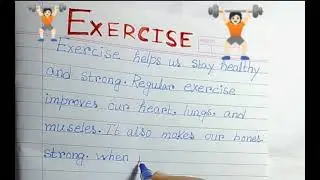 EXERCISE
Exercise helps us stay healthy
and strong. Regular exercise
improves our heart, lungs, and
muscles. It also makes our bones
strong. when